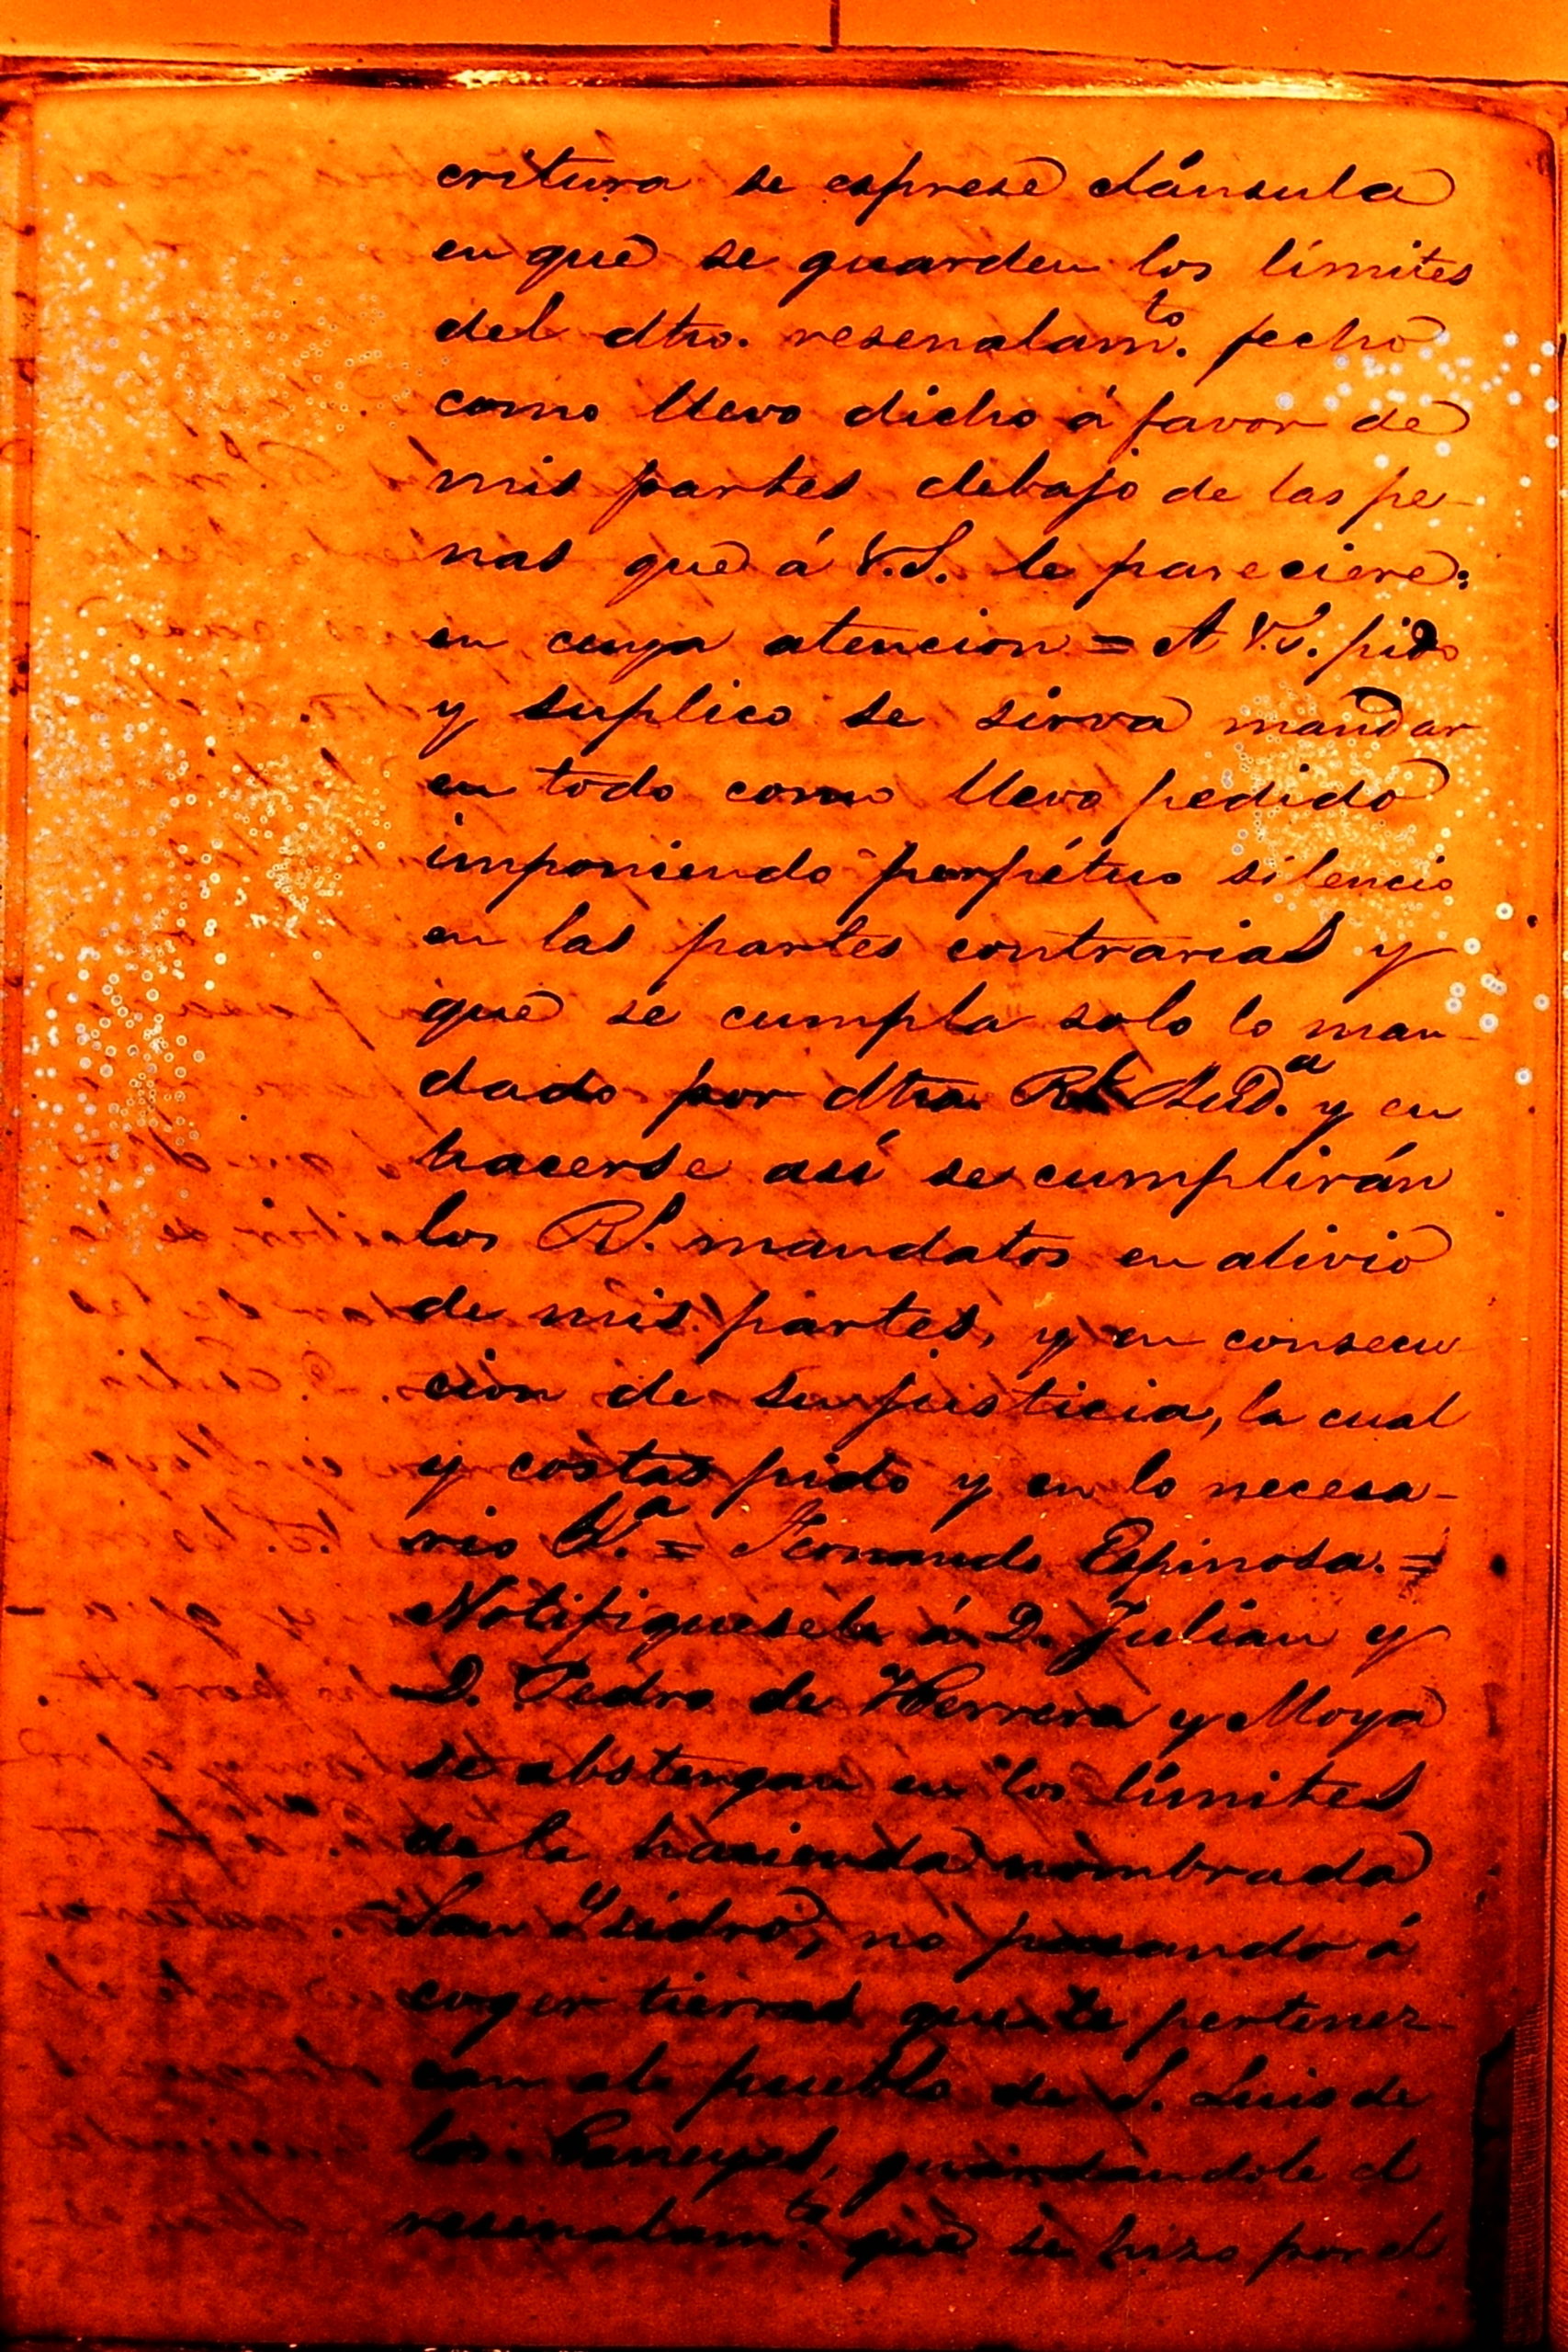 critura se esprese cláusula
en que se guarden los límites
del dho. resenalam.to fecho
como llevo dicho á favor de
mis partes debajo de las pe-
nas que á V.S. le pareciere:
en cuya atencion = A V.S. pido
y suplico se sirva mandar
en todo como llevo pedido
imponiendo perpétuo silencio
en las partes contrarias y
que se cumpla solo lo man-
dado por dha. Rl. Aud.a y en
hacerse así se cumplirán
los Rs. mandatos en alivio
de mis partes, y en consecu
cion de su justicia, la cual
y costas pido y en lo necesa-
rio V.a = Fernando Espinosa. =
Notifiquesele á D. Julian y
D. Pedro de Herrera y Moya
se abstengan en los límites
de la hacienda nombrada
San Ysidro, no pasando á
coger tierras que le pertenez-
can al pueblo de S. Luis de
los guardandole el
resenalam.to que se hizo por el